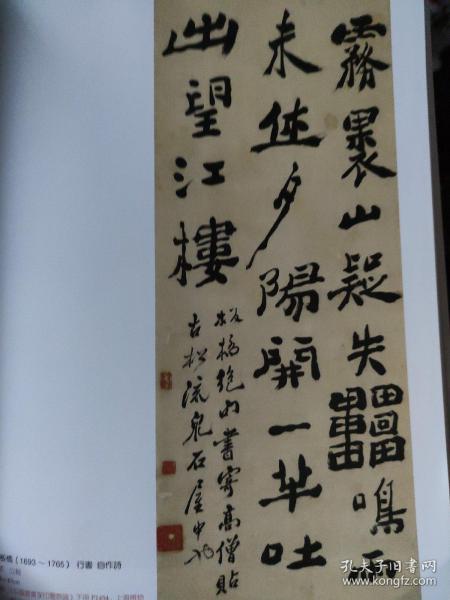 霧裹山疑失𤴐鳴雨
未休夕陽開一半吐
出望江樓
板橋絕句書寄高僧貼
古松流泉石屋中
橋（1693～1765） 行書 自作詩
上海博物
孔夫子旧书网